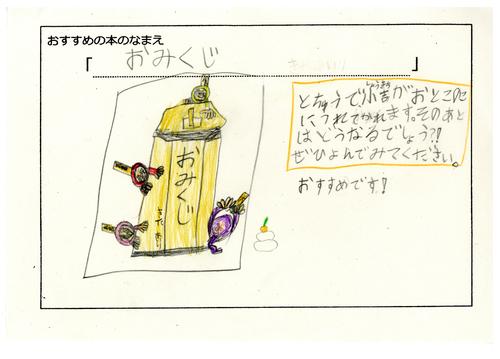 おすすめの本のなまえ
「おみくじ」
おみくじ
きた あり
とちゅうで小吉がおとこのこ
につれてかれます。そのあと
はどうなるでしょう?!
ぜひよんでみてください。
おすすめです!